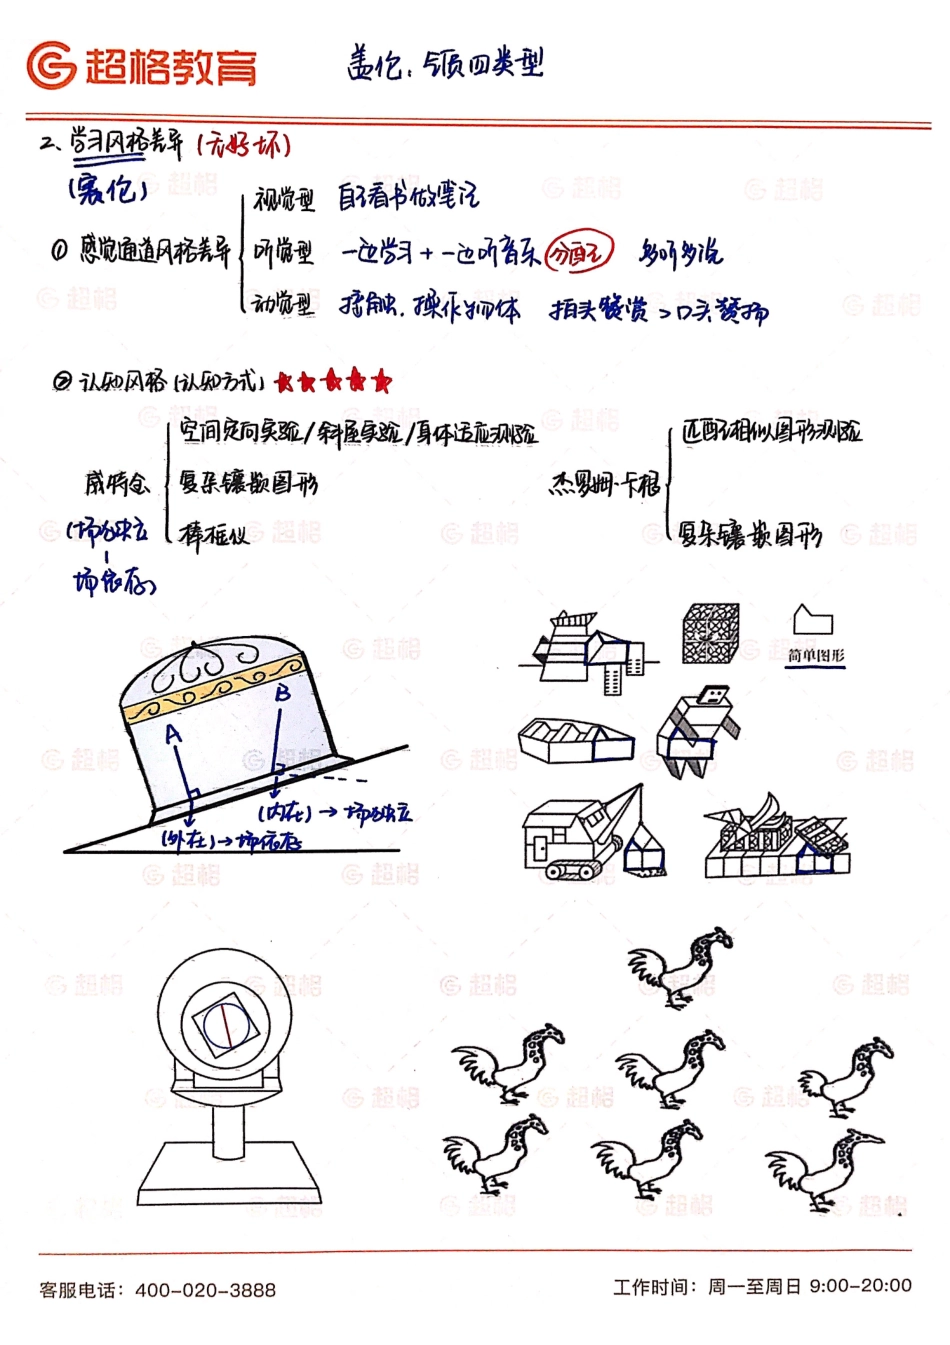 超格教育
盖伦:气质四类型
2、学习风格差异(无好坏)
(赛伦)
视觉型 自己看书做笔记
① 感觉通道风格差异
听觉型 一边学习+一边听音乐 分配 多听多说
动觉型 接触、操作物体 拍头赞赏>口头赞扬
② 认知风格(认知方式)★★★★★
空间定向实验/斜屋实验/身体适应测验 匹配相似图形测验
威特金 复杂镶嵌图形 杰罗姆·卡根
(场独立 棒框仪 复杂镶嵌图形
场依存)
简单图形
B
A
(内在)→场独立
(外在)→场依存
客服电话:400-020-3888 工作时间:周一至周日 9:00-20:00